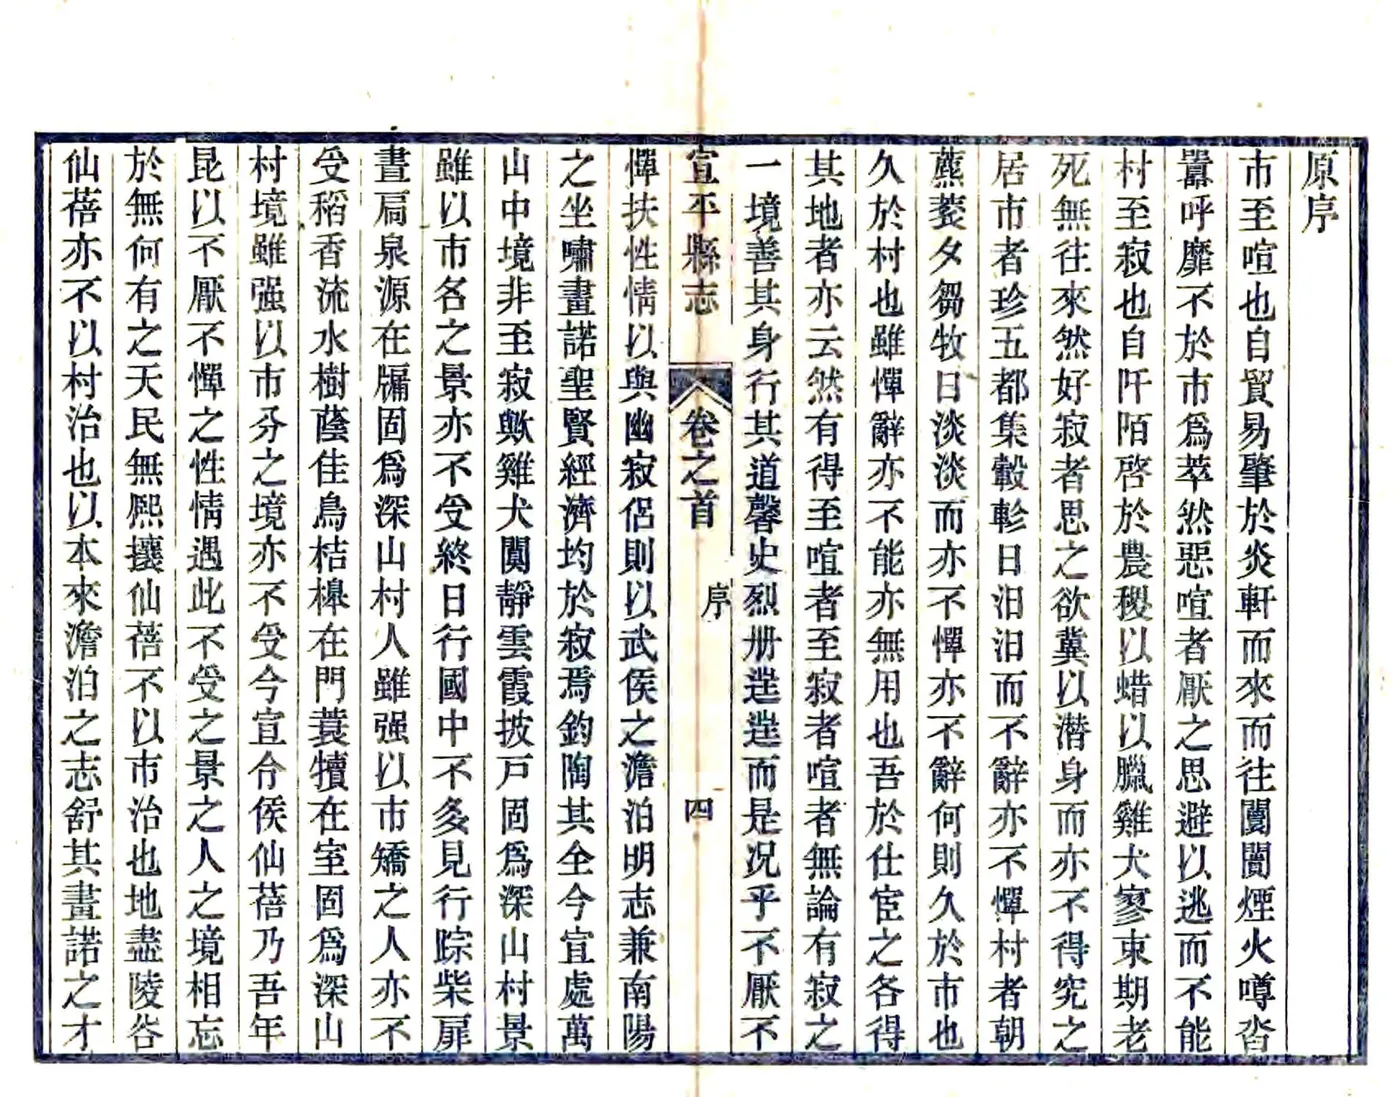 原序
市至喧也自貿易肇於炎軒而來而往闤闠煙火噂沓
囂呼靡不於市爲萃然惡喧者厭之思避以逃而不能
村至寂也自阡陌啓於農稷以蜡以臘雞犬寥東期老
死無往來然好寂者思之欲冀以潛身而亦不得究之
居市者珍五都集轂軫日汨汨而不辭亦不憚村者朝
蒸菱夕芻牧日淡淡而亦不憚亦不辭何則久於市也
久於村也雖憚辭亦不能亦無用也吾於仕宦之各得
其地者亦云然有得至喧者至寂者喧者無論有寂之
一境善其身行其道馨史烈册逞逞而是况乎不厭不
宣平縣志
卷之首
序
四
憚扶性情以與幽寂侶則以武侯之澹泊明志兼南陽
之坐嘯畫諾聖賢經濟均於寂焉鈞陶其全今宜處萬
山中境非至寂歟雞犬闃靜雲霞披戸固爲深山村景
雖以市各之景亦不受終日行國中不多見行踪柴扉
晝扃泉源在牖固爲深山村人雖强以市矯之人亦不
受稻香流水樹蔭佳鳥桔槔在門蓑犢在室固爲深山
村境雖强以市夯之境亦不受今宣令侯仙蓓乃吾年
昆以不厭不憚之性情遇此不受之景之人之境相忘
於無何有之天民無熙攘仙蓓不以市治也地盡陵谷
仙蓓亦不以村治也以本來澹泊之志舒其畫諾之才